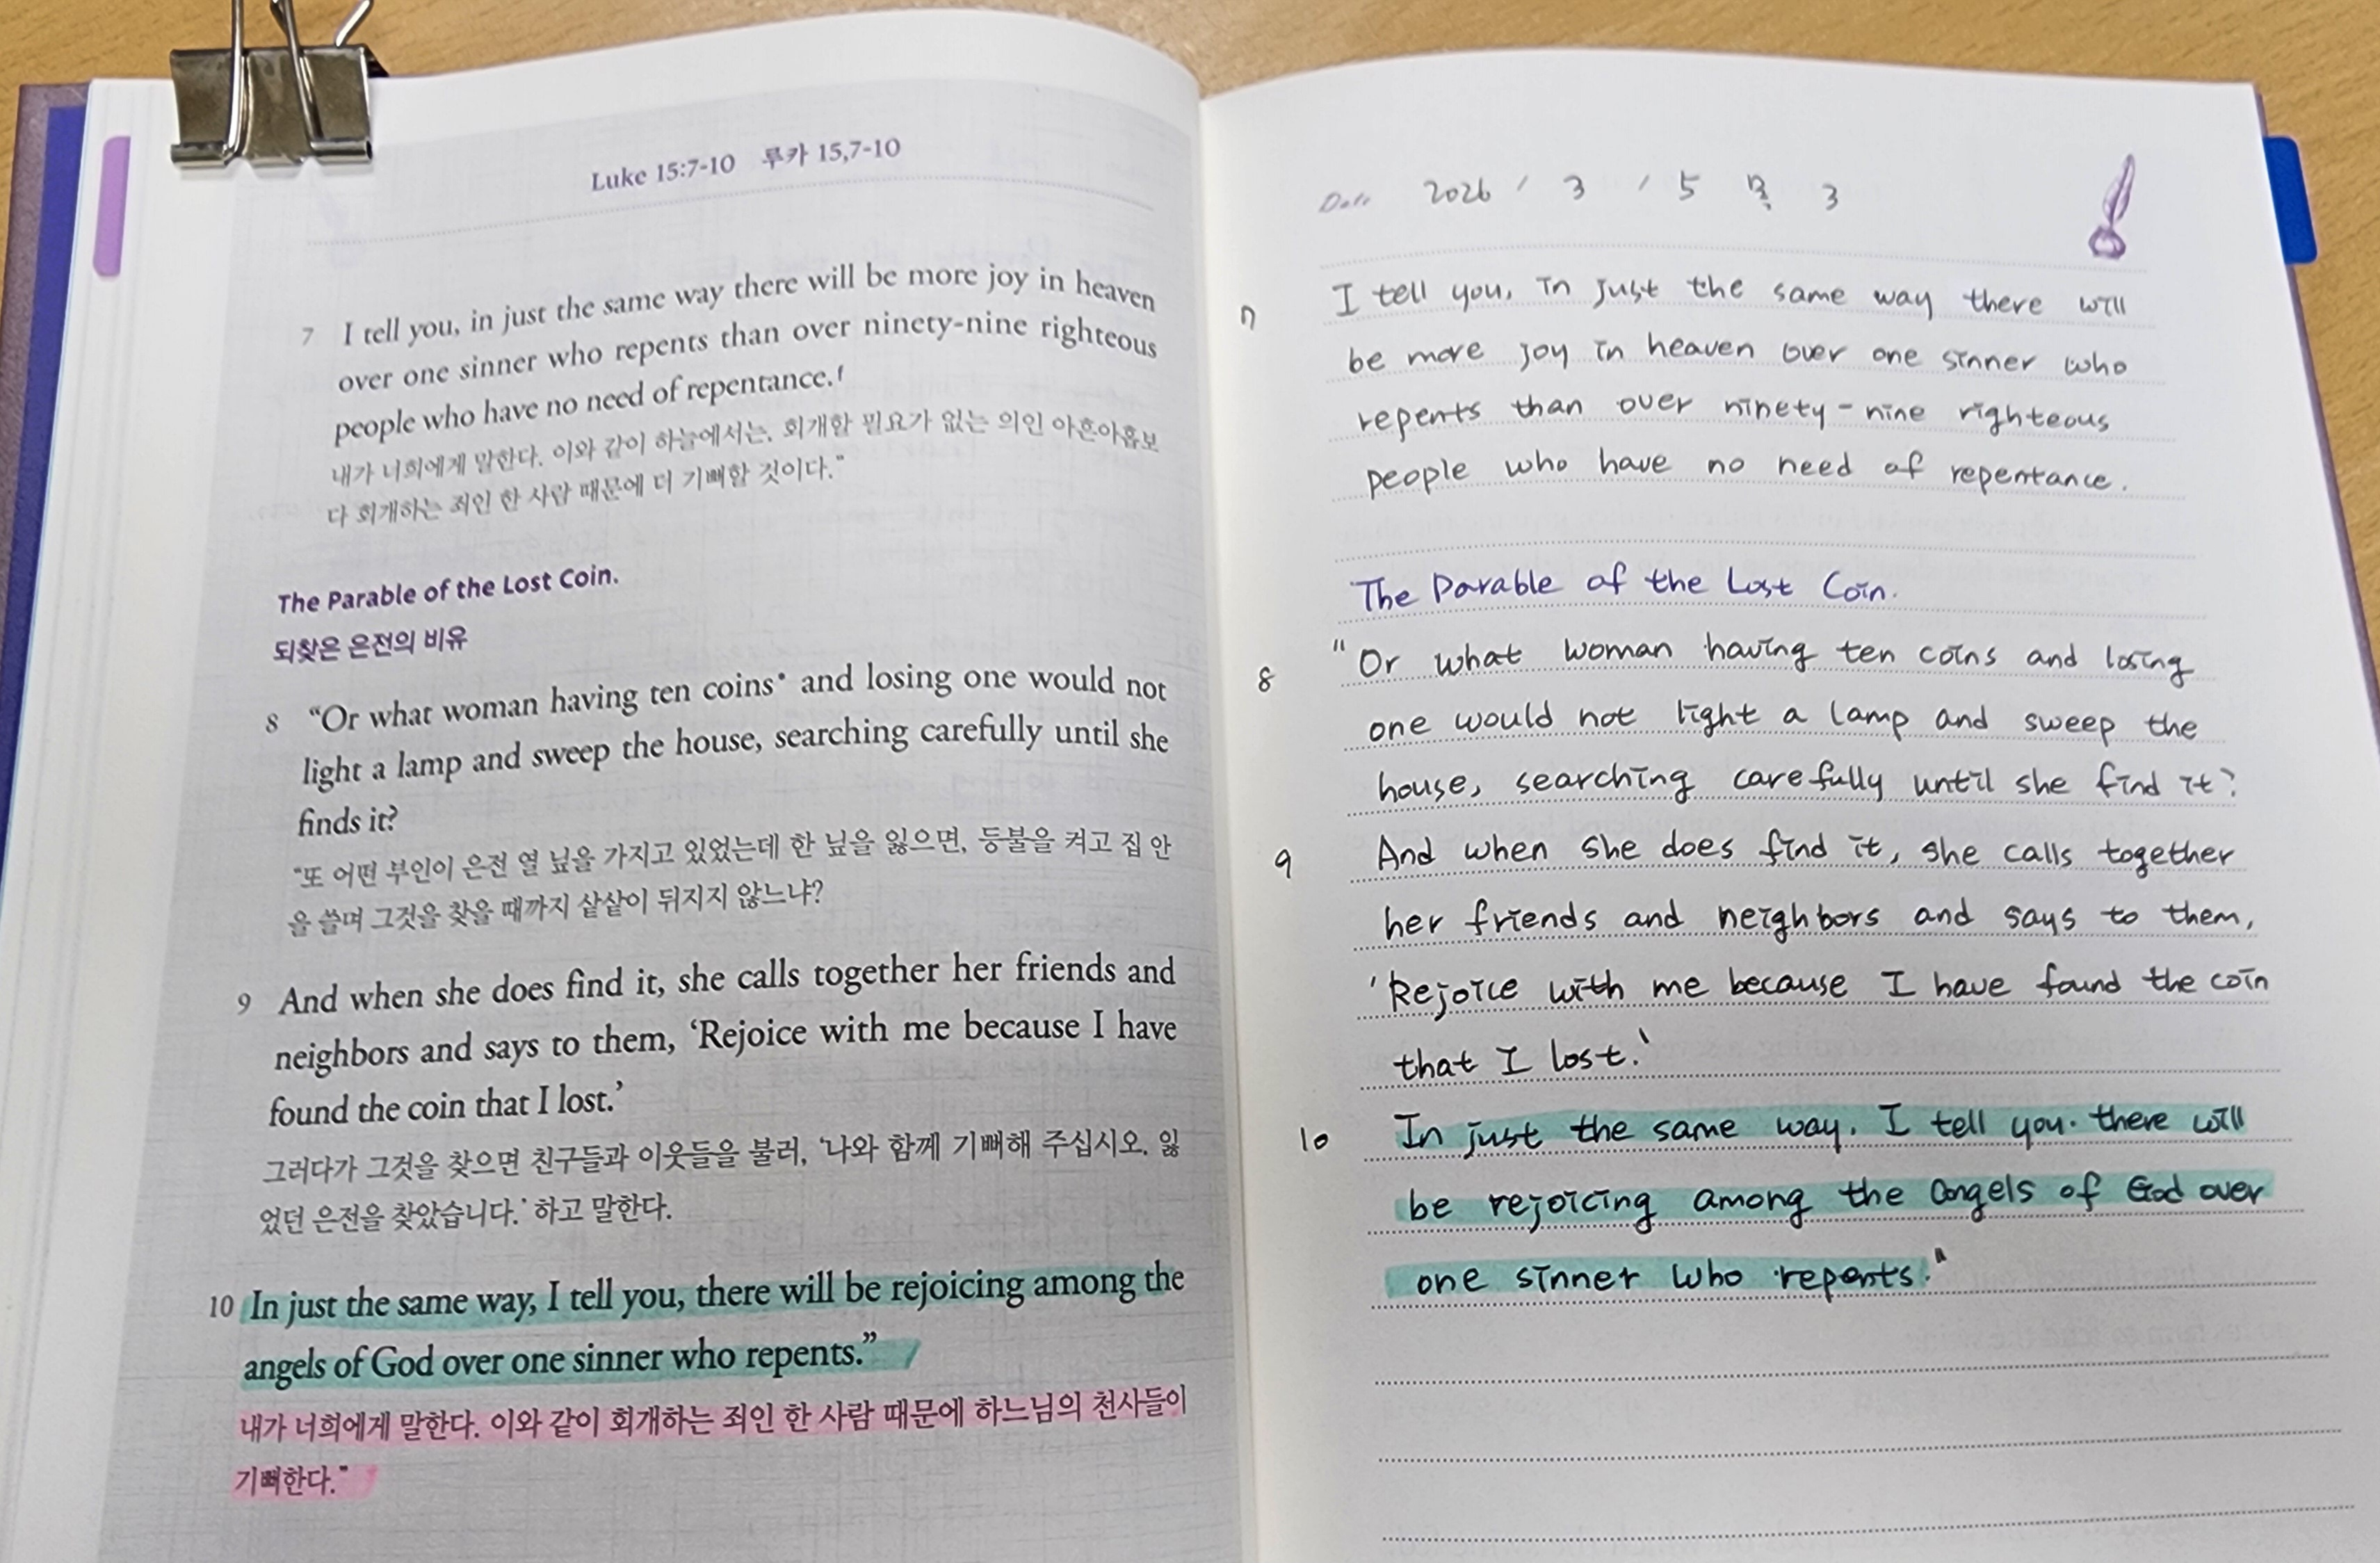 Luke 15:7-10 루카 15,7-10
7 I tell you, in just the same way there will be more joy in heaven
over one sinner who repents than over ninety-nine righteous
people who have no need of repentance.f
내가 너희에게 말한다. 이와 같이 하늘에서는, 회개할 필요가 없는 의인 아흔아홉보
다 회개하는 죄인 한 사람 때문에 더 기뻐할 것이다.”
The Parable of the Lost Coin.
되찾은 은전의 비유
8 “Or what woman having ten coins* and losing one would not
light a lamp and sweep the house, searching carefully until she
finds it?
“또 어떤 부인이 은전 열 닢을 가지고 있었는데 한 닢을 잃으면, 등불을 켜고 집 안
을 쓸며 그것을 찾을 때까지 샅샅이 뒤지지 않느냐?
9 And when she does find it, she calls together her friends and
neighbors and says to them, ‘Rejoice with me because I have
found the coin that I lost.’
그러다가 그것을 찾으면 친구들과 이웃들을 불러, ‘나와 함께 기뻐해 주십시오. 잃
었던 은전을 찾았습니다.’ 하고 말한다.
10 In just the same way, I tell you, there will be rejoicing among the
angels of God over one sinner who repents.”
내가 너희에게 말한다. 이와 같이 회개하는 죄인 한 사람 때문에 하느님의 천사들이
기뻐한다.”
Date 2026 / 3 / 5 목 3
7 I tell you, in just the same way there will
be more joy in heaven over one sinner who
repents than over ninety-nine righteous
people who have no need of repentance.
The Parable of the Lost Coin.
8 "Or what woman having ten coins and losing
one would not light a lamp and sweep the
house, searching carefully until she find it?
9 And when she does find it, she calls together
her friends and neighbors and says to them,
'Rejoice with me because I have found the coin
that I lost.'
10 In just the same way. I tell you. there will
be rejoicing among the angels of God over
one sinner who repents."